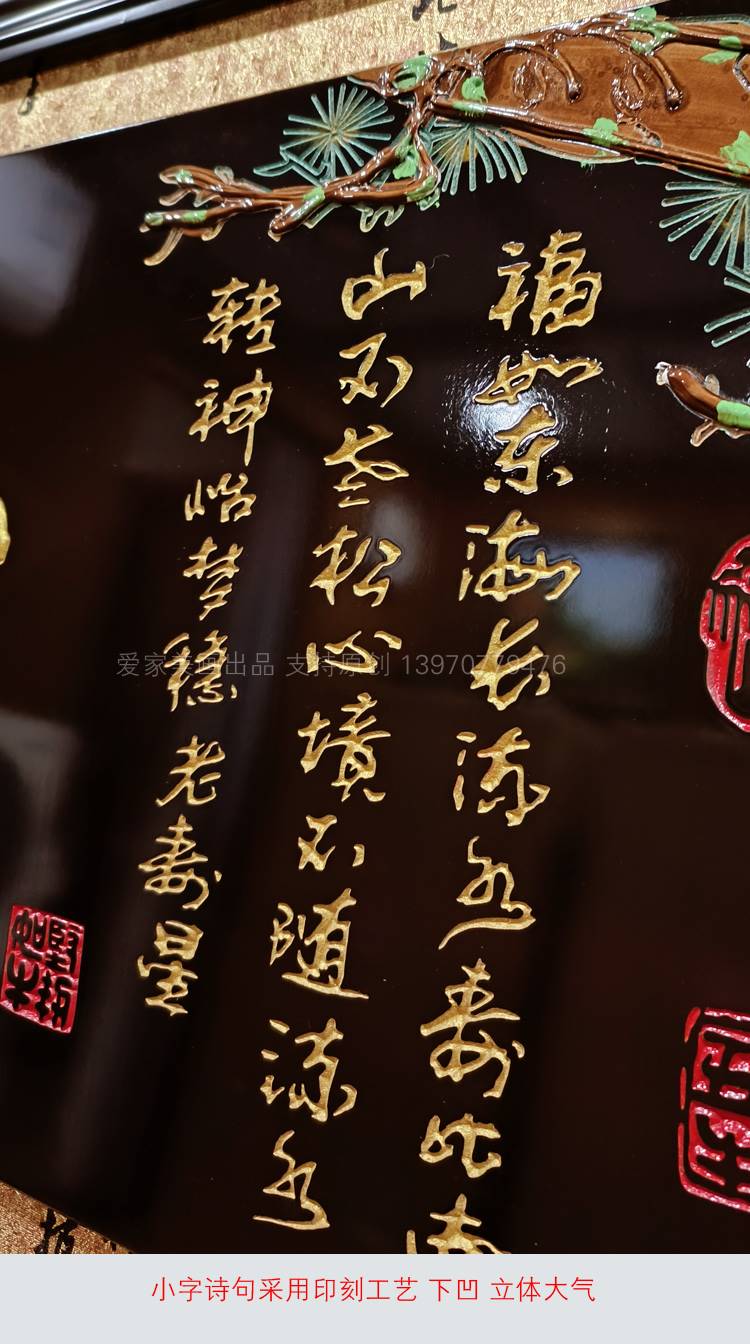 福如东海长流水寿比南
山不老松心境不随流水
转神怡梦稳老寿星
爱家美画出品 支持原创 13970779476
小字诗句采用印刻工艺 下凹 立体大气